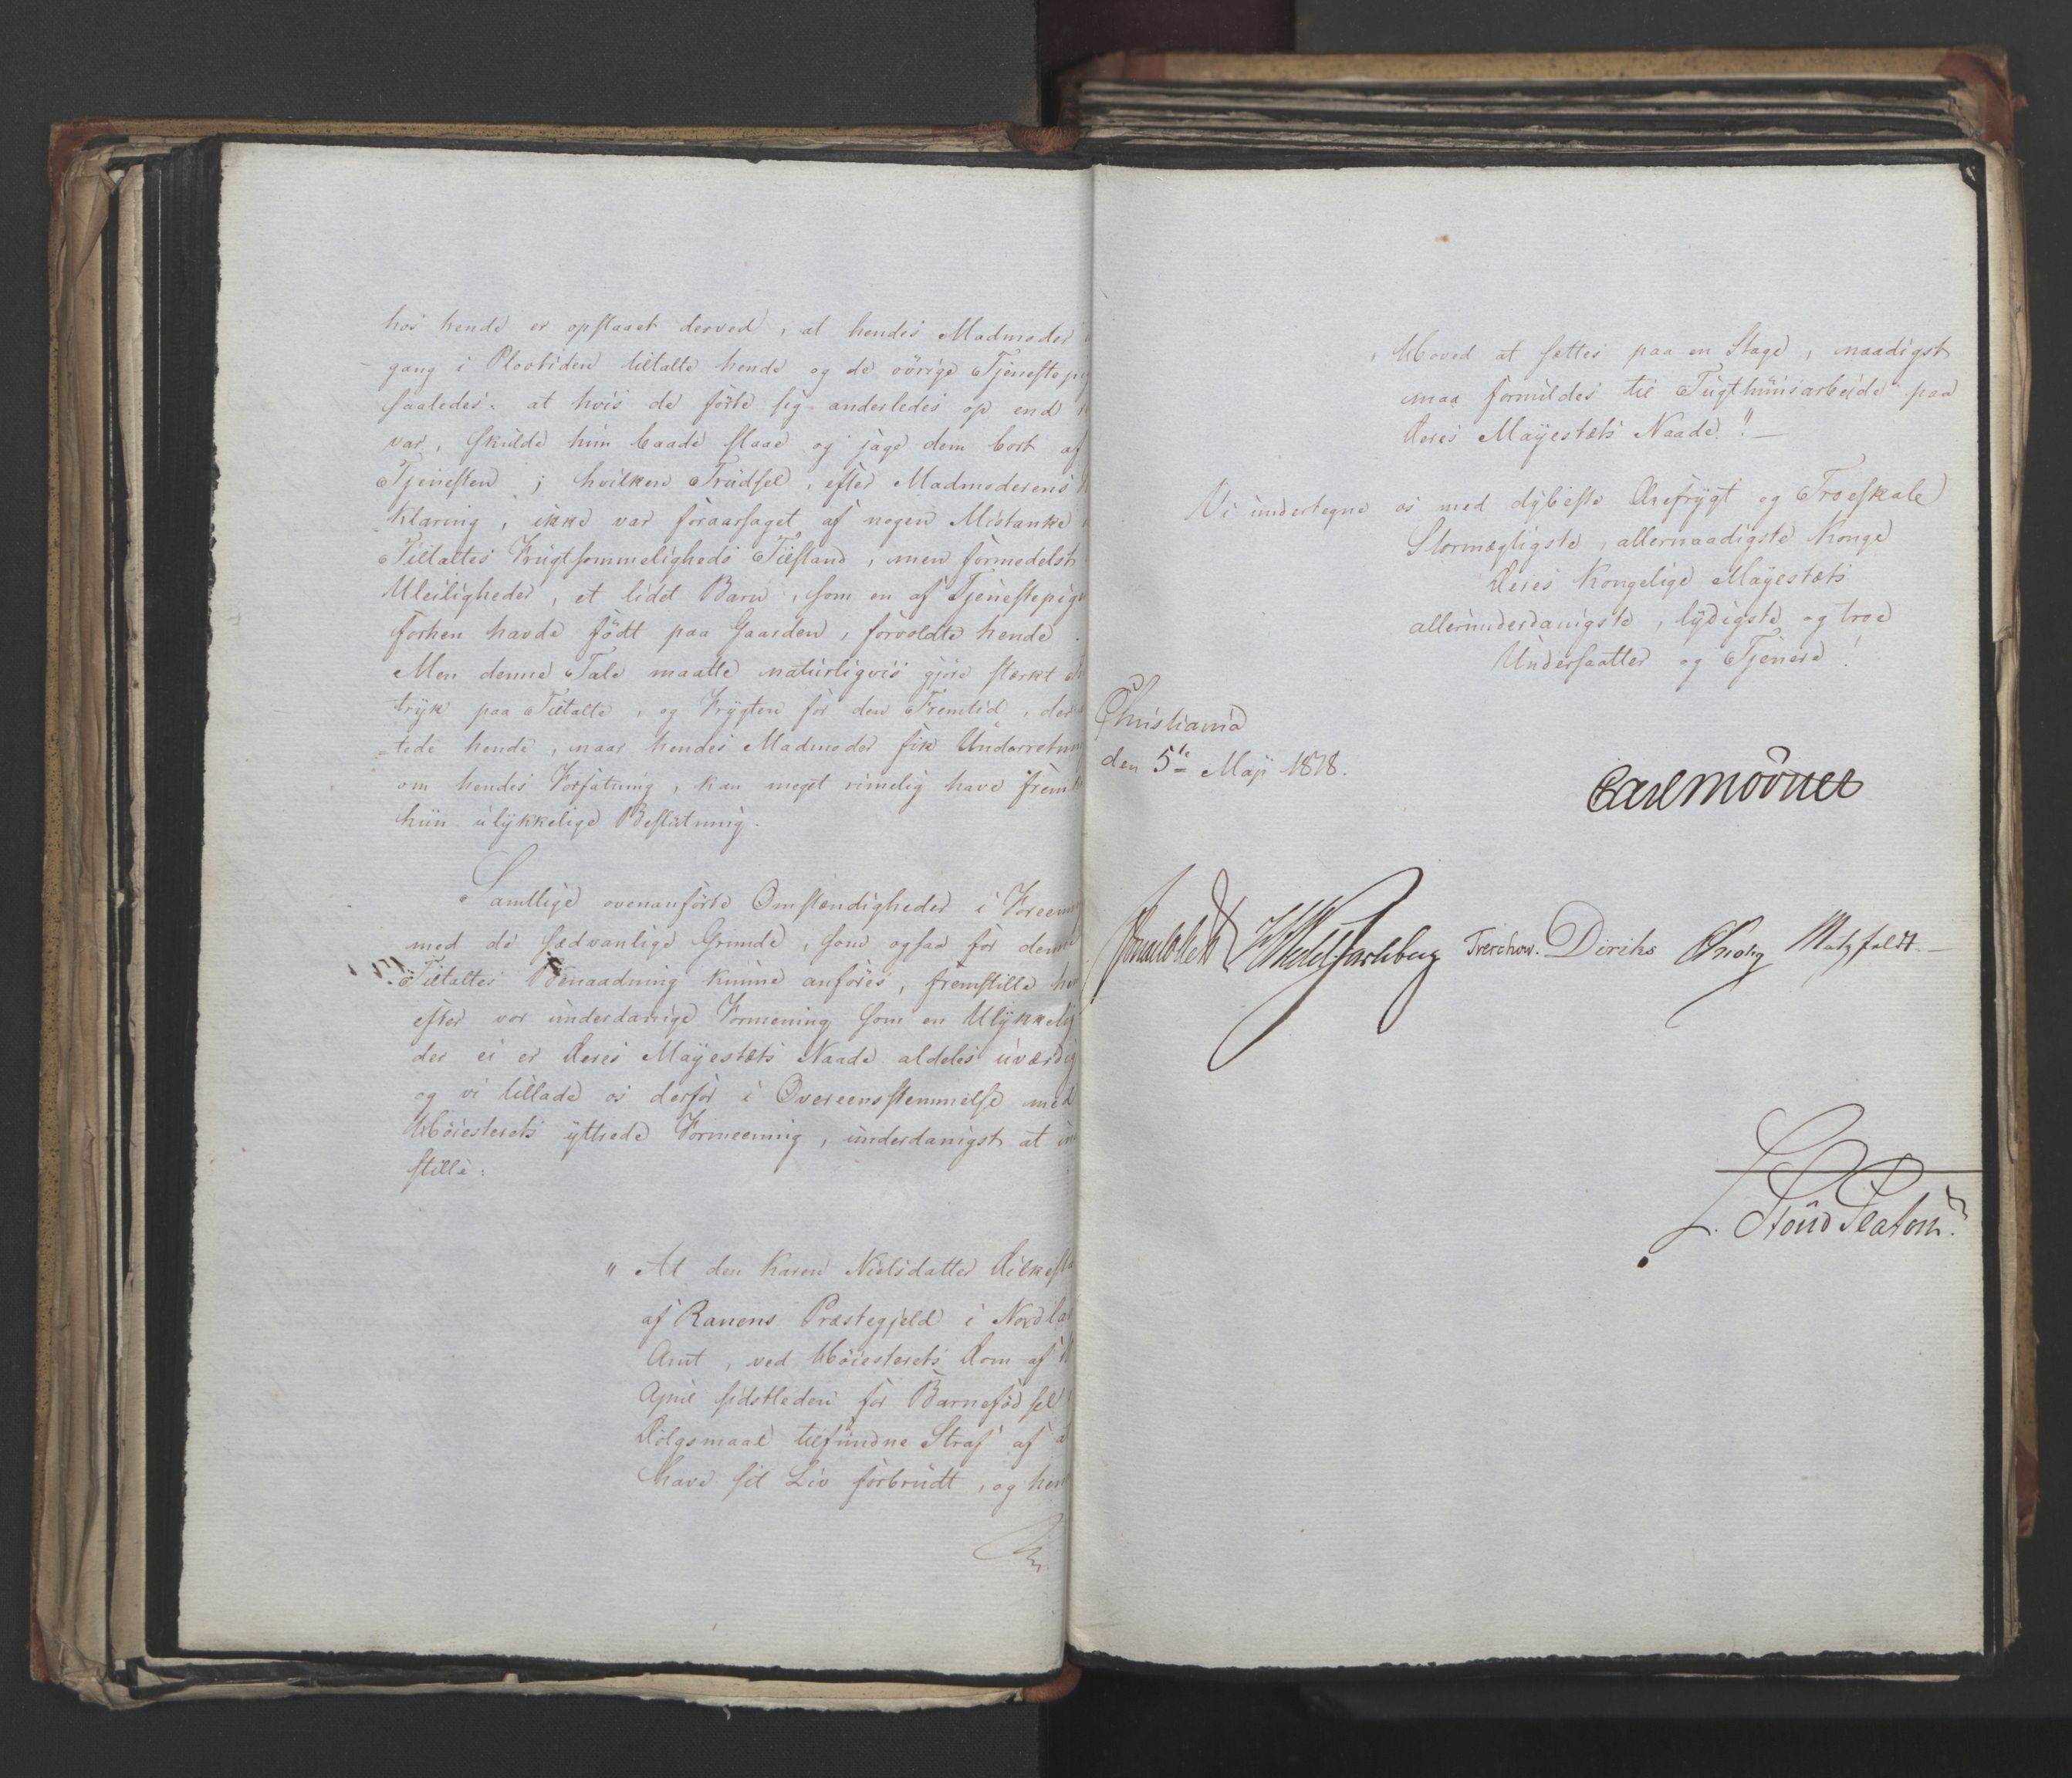 hos hende er opstaaet derved, at hendes Madmoder
gang i Plovtiden tiltalte hende og de övrige Tjenestepi
saaledes: at hvis de förte sig anderledes op end
var, skulde hun baade slaae og jage dem bort af
Tjenesten; hvilken Trudsel, efter Madmoderens
klaring, ikke var foraarsaget af nogen Mistanke
Tiltaltes Frugtsommeligheds Tilstand, men formedelst
Uleiligheder, et lidet Barn, som en af Tjenestepige
forhen havde födt paa Gaarden, forvoldte hende.
Men denne Tale maatte naturligviis gjöre stærkt
tryk paa Tiltalte, og Frygten for den Fremtid, der
-tede hende, naar hendes Madmoder fik Underretning
om hendes Forfatning, kan meget rimelig have frem
hiin ulykkelige Beslutning.
Samtlige ovenanförte Omstændigheder i Foreen
med de sædvanlige Grunde, som ogsaa for denne
Tiltaltes Benaadning kunne anföres, fremstille hen
efter vor underdanige Formening som en Ulykkelig
der ei er Deres Mayestæts Naade aldeles uværdig
og vi tillade os derfor i Overeensstemmelse med
Höiesterets yttrede Formeening, underdanigst at ind
stille:
" At den Karen Nielsdatter
af Ranens Præstegjeld i Nordla
Amt, ved Höiesterets Dom af
April sidstleden for Barneföd sel
Dölgsmaal tilfundne Straf af at
have sit Liv forbrudt, og hen
Ho
Hoved at settes paa en Stage, naadigst
maa formildes til Tugthuusarbeide paa
Deres Mayestæts Naade!"—
Vi undertegne os med dybeste Ærefrygt og Troeskab
Stormægtigste, allernaadigste Konge
Deres Kongelige Mayestæts
allerunderdanigste, lydigste og troe
Undersaatter og Tjenere!
Christiania
den 5te Maji 1818.
Carl Mörner
Sommerhielm HWedel Jarlsberg Treschow. Diriks CKrohg Motzfeldt.